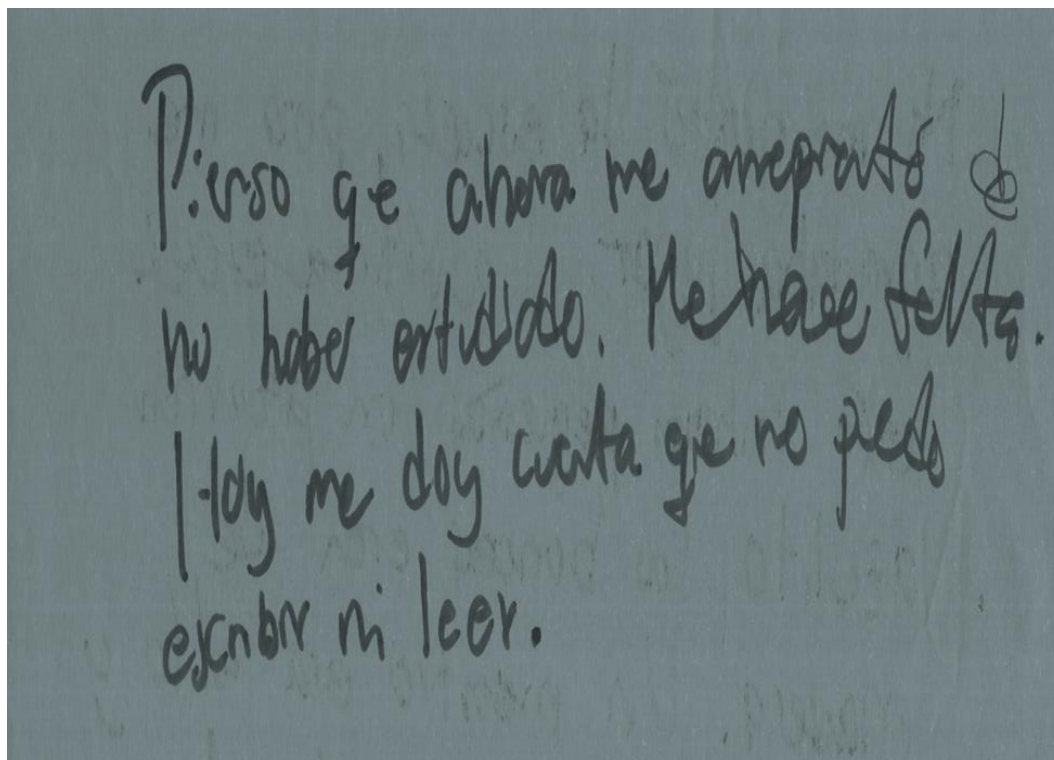 Pienso que ahora me arrepiento de
no haber estudiado. Me hace falta.
Hoy me doy cuenta que no puedo
escribir ni leer.